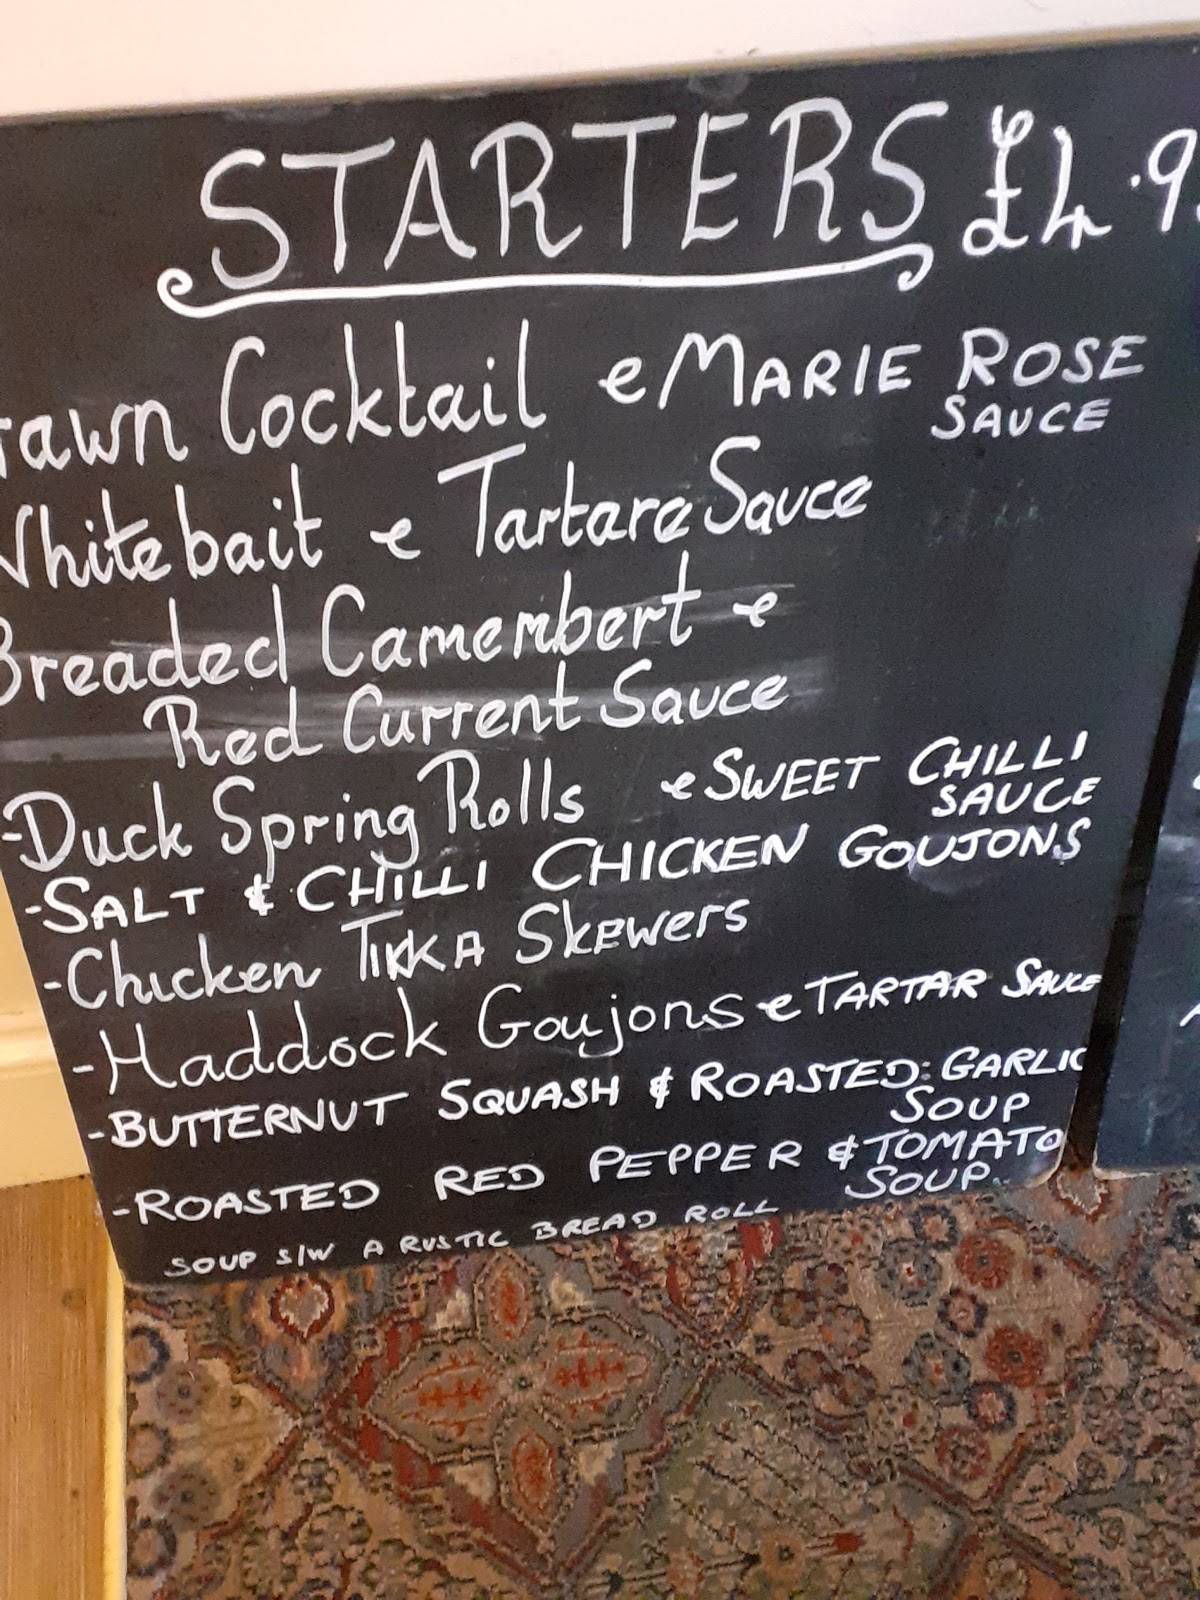 STARTERS £4.9
rawn Cocktail e MARIE ROSE
SAUCE
Whitebait e Tartare Sauce
Breaded Camembert e
Red Current Sauce
-Duck Spring Rolls e SWEET CHILLI
SAUCE
-SALT & CHILLI CHICKEN GOUJONS
-Chicken TIKKA SKEWERS
-Haddock Goujons e TARTAR SAUCE
-BUTTERNUT SQUASH & ROASTED GARLIC
SOUP
-ROASTED RED PEPPER & TOMATO
SOUP
SOUP S/W A RUSTIC BREAD ROLL